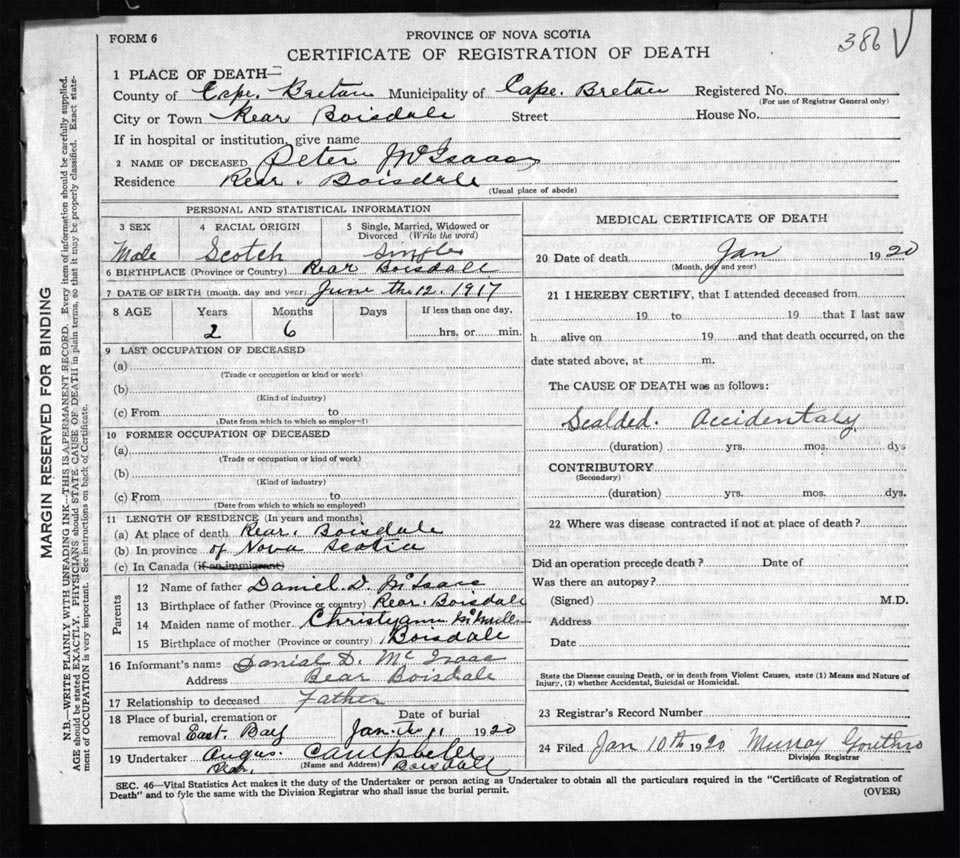 FORM 6
PROVINCE OF NOVA SCOTIA
386 V
CERTIFICATE OF REGISTRATION OF DEATH
1 PLACE OF DEATH—
County of Cape. Breton Municipality of Cape. Breton Registered No.
(For use of Registrar General only)
City or Town Rear Boisdale Street House No.
If in hospital or institution, give name
2 NAME OF DECEASED Peter McIsaac
Residence Rear. Boisdale
(Usual place of abode)
PERSONAL AND STATISTICAL INFORMATION
3 SEX 4 RACIAL ORIGIN 5 Single, Married, Widowed or Divorced (Write the word)
Male Scotch Single
6 BIRTHPLACE (Province or Country) Rear Boisdale
7 DATE OF BIRTH (month, day and year) June the 12. 1917
8 AGE Years Months Days If less than one day,
2 6 hrs. or min.
9 LAST OCCUPATION OF DECEASED
(a)
(Trade or occupation or kind or work)
(b)
(Kind of industry)
(c) From to
(Date from which to which so employed)
10 FORMER OCCUPATION OF DECEASED
(a)
(Trade or occupation or kind of work)
(b)
(Kind of industry)
(c) From to
(Date from which to which so employed)
11 LENGTH OF RESIDENCE (In years and months)
(a) At place of death Rear. Boisdale
(b) In province of Nova Scotia
(c) In Canada (if an immigrant)
Parents
12 Name of father Daniel. D. McIsaac
13 Birthplace of father (Province or country) Rear. Boisdale
14 Maiden name of mother Christyann
15 Birthplace of mother (Province or country) Boisdale
16 Informant's name Daniel D. Mc Isaac
Address Rear Boisdale
17 Relationship to deceased Father
18 Place of burial, cremation or removal East Bay
Date of burial
Jan. 11 1920
19 Undertaker Angus. Campbell
(Name and Address)
Rear. Boisdale
MEDICAL CERTIFICATE OF DEATH
20 Date of death Jan 1920
(Month, day and year)
21 I HEREBY CERTIFY, that I attended deceased from
19 to 19 that I last saw
h alive on 19 and that death occurred, on the
date stated above, at m.
The CAUSE OF DEATH was as follows:
Scalded. Accidentaly
(duration) yrs. mos. dys
CONTRIBUTORY
(Secondary)
(duration) yrs. mos. dys.
22 Where was disease contracted if not at place of death?
Did an operation precede death? Date of
Was there an autopsy?
(Signed) M.D.
Address
Date
State the Disease causing Death, or in death from Violent Causes, state (1) Means and Nature of
Injury, (2) whether Accidental, Suicidal or Homicidal.
23 Registrar's Record Number
24 Filed Jan 10th 1920 Murray Gouthro
Division Registrar
SEC. 46—Vital Statistics Act makes it the duty of the Undertaker or person acting as Undertaker to obtain all the particulars required in the "Certificate of Registration of
Death" and to fyle the same with the Division Registrar who shall issue the burial permit.
(OVER)
MARGIN RESERVED FOR BINDING
N.B.—WRITE PLAINLY WITH UNFADING INK—THIS IS A PERMANENT RECORD. Every item of information should be carefully supplied.
AGE should be stated EXACTLY. PHYSICIANS should STATE CAUSE OF DEATH in plain terms, so that it may be properly classified. Exact state-
ment of OCCUPATION is very important. See instructions on back of Certificate.